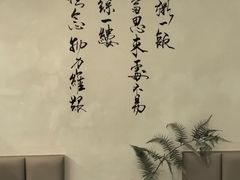 粥一飯
當思來處不易
一縷
念物力維艱